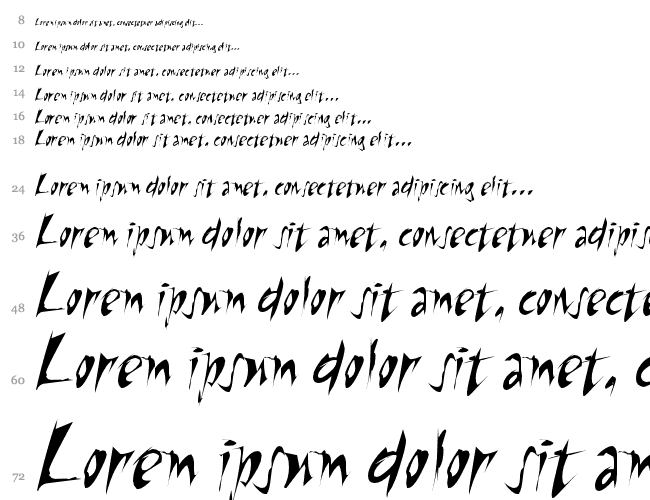 8 Lorem ipsum dolor sit amet, consectetuer adipiscing elit...
10 Lorem ipsum dolor sit amet, consectetuer adipiscing elit...
12 Lorem ipsum dolor sit amet, consectetuer adipiscing elit...
14 Lorem ipsum dolor sit amet, consectetuer adipiscing elit...
16 Lorem ipsum dolor sit amet, consectetuer adipiscing elit...
18 Lorem ipsum dolor sit amet, consectetuer adipiscing elit...
24 Lorem ipsum dolor sit amet, consectetuer adipiscing elit...
36 Lorem ipsum dolor sit amet, consectetuer adipis
48 Lorem ipsum dolor sit amet, consecte
60 Lorem ipsum dolor sit amet, c
72 Lorem ipsum dolor sit am